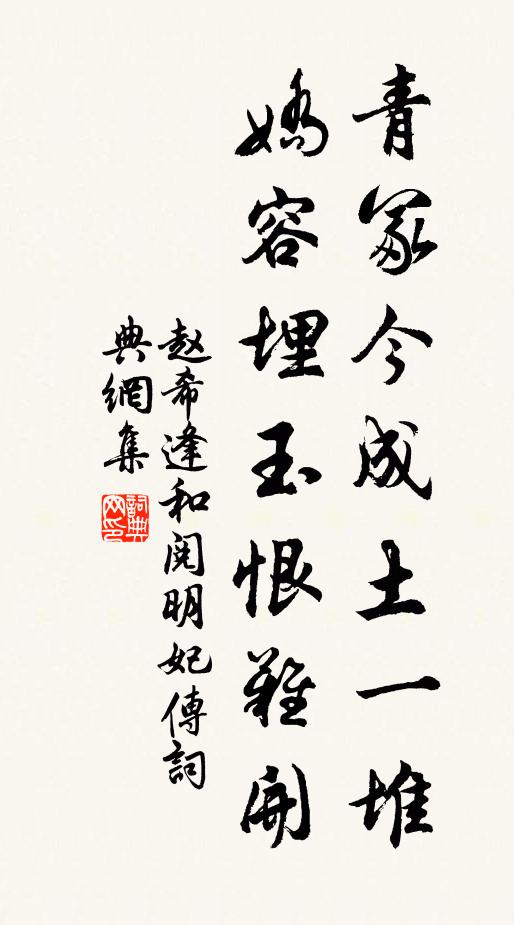 青冢今成土一堆
嬌容埋玉恨難開
赵希逢和阅明妃傳詞
典網集
詞典
网印